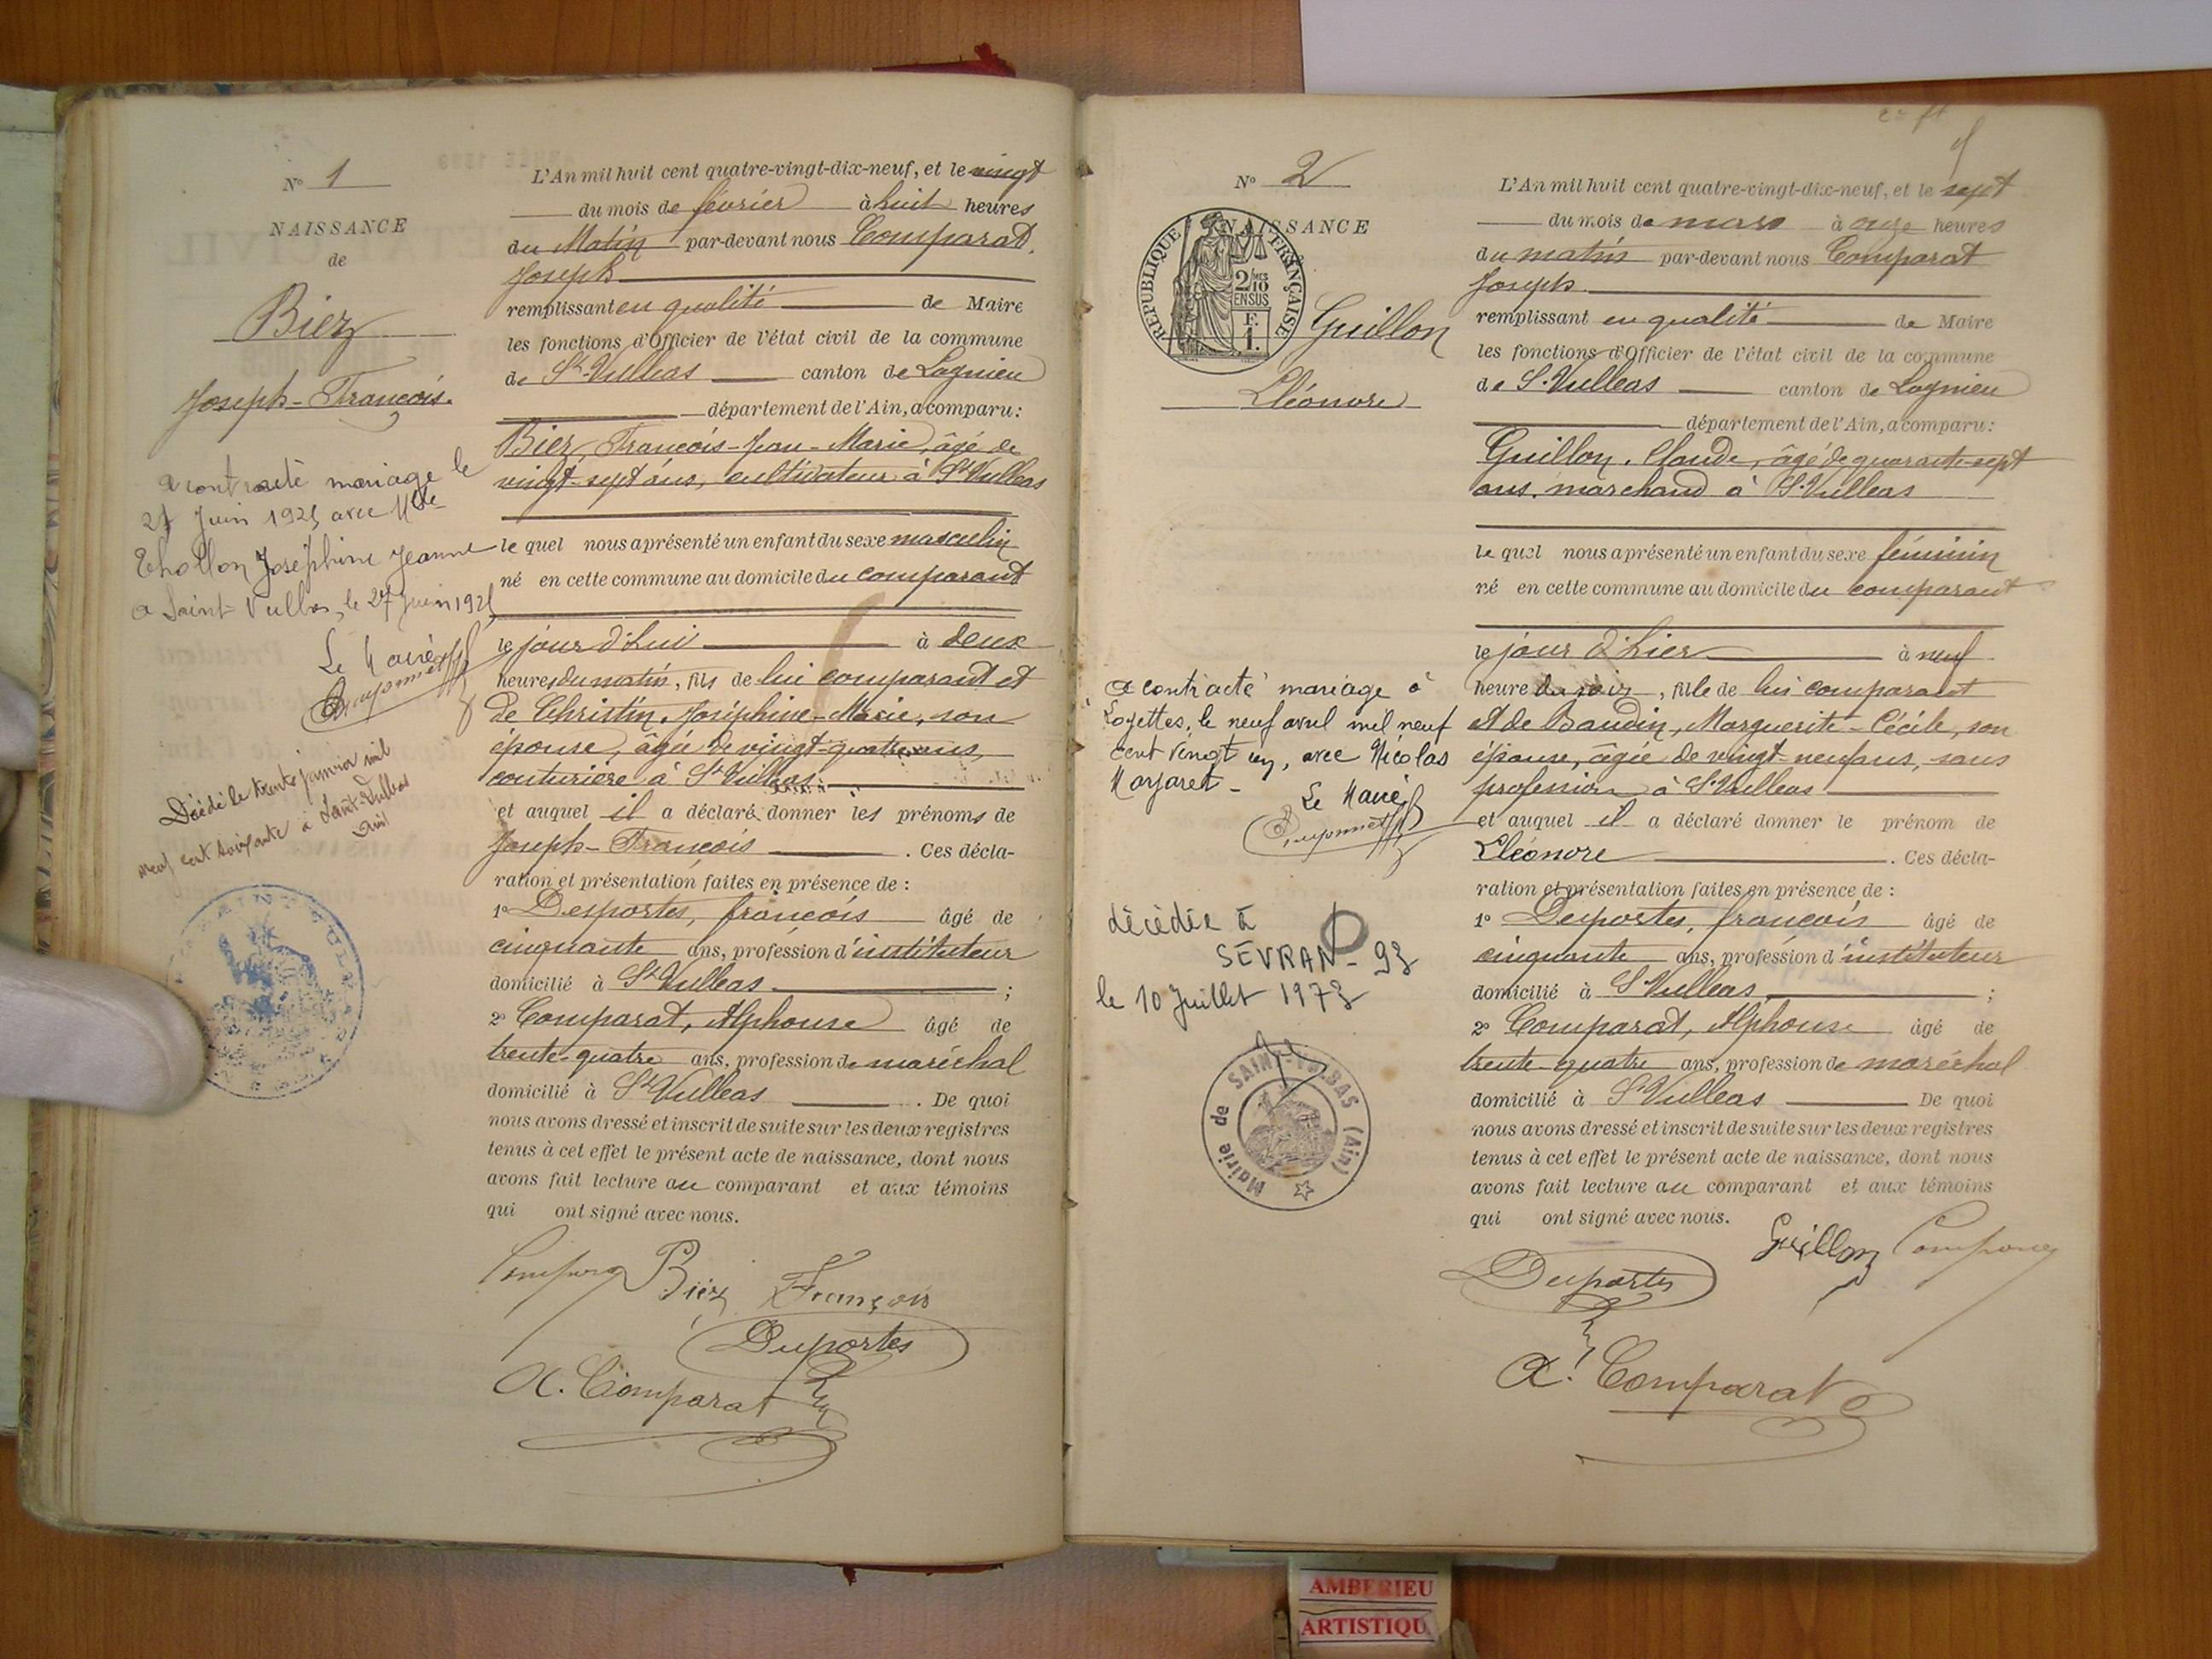 N° 1
NAISSANCE
de
Biez
Joseph-François.
a contracté mariage le
27 Juin 1925 avec Mlle
Thollon Joséphine Jeanne
a Saint-Vulbas, le 27 Juin 1925
Le Maire
Décédé le trente janvier mil
neuf cent soixante à Saint-Vulbas
Ain
L'An mil huit cent quatre-vingt-dix-neuf, et le vingt
du mois de février à huit heures
du Matin par-devant nous Comparat,
Joseph
remplissant en qualité de Maire
les fonctions d'Officier de l'état civil de la commune
de St-Vulbas canton de Lagnieu
département de l'Ain, a comparu:
Biez, François-Jean-Marie, âgé de
vingt-sept ans, cultivateur à St Vulbas
le quel nous a présenté un enfant du sexe masculin
né en cette commune au domicile du comparant
le jour d'hui à deux
heures du matin, fils de lui comparant et
de Christin, Joséphine-Marie, son
épouse, âgée de vingt-quatre ans,
couturière à St Vulbas.
et auquel il a déclaré donner les prénoms de
Joseph-François. Ces décla-
ration et présentation faites en présence de :
1° Desportes, françois âgé de
cinquante ans, profession d'instituteur
domicilié à St Vulbas ;
2° Comparat, Alphonse âgé de
trente-quatre ans, profession de maréchal
domicilié à St Vulbas. De quoi
nous avons dressé et inscrit de suite sur les deux registres
tenus à cet effet le présent acte de naissance, dont nous
avons fait lecture au comparant et aux témoins
qui ont signé avec nous.
Biez François
Desportes
A. Comparat
N° 2
NAISSANCE
RÉPUBLIQUE FRANÇAISE
2/10 MES
EN SUS
F.
1.
Guillon
Eléonore
a contracté mariage à
Loyettes, le neuf avril mil neuf
cent vingt un, avec Nicolas
Margaret -
Le Maire
décédée à
SEVRAN - 93
le 10 Juillet 1973
Mairie de SAINT-VULBAS (Ain)
L'An mil huit cent quatre-vingt-dix-neuf, et le sept
du mois de mars à onze heures
du matin par-devant nous Comparat
Joseph
remplissant en qualité de Maire
les fonctions d'Officier de l'état civil de la commune
de St-Vulbas canton de Lagnieu
département de l'Ain, a comparu:
Guillon, Claude, âgé de quarante-sept
ans, marchand à St-Vulbas
le quel nous a présenté un enfant du sexe féminin
né en cette commune au domicile du comparant
le jour d'hier à neuf
heure du soir, fille de lui comparant
et de Baudin, Marguerite-Cécile, son
épouse, âgée de vingt-neuf ans, sans
profession à St-Vulbas
et auquel il a déclaré donner le prénom de
Eléonore. Ces décla-
ration et présentation faites en présence de :
1° Desportes, françois âgé de
cinquante ans, profession d'instituteur
domicilié à St Vulbas ;
2° Comparat, Alphonse âgé de
trente-quatre ans, profession de maréchal
domicilié à St Vulbas De quoi
nous avons dressé et inscrit de suite sur les deux registres
tenus à cet effet le présent acte de naissance, dont nous
avons fait lecture au comparant et aux témoins
qui ont signé avec nous.
Guillon
Desportes
A. Comparat
AMBERIEU
ARTISTIQU